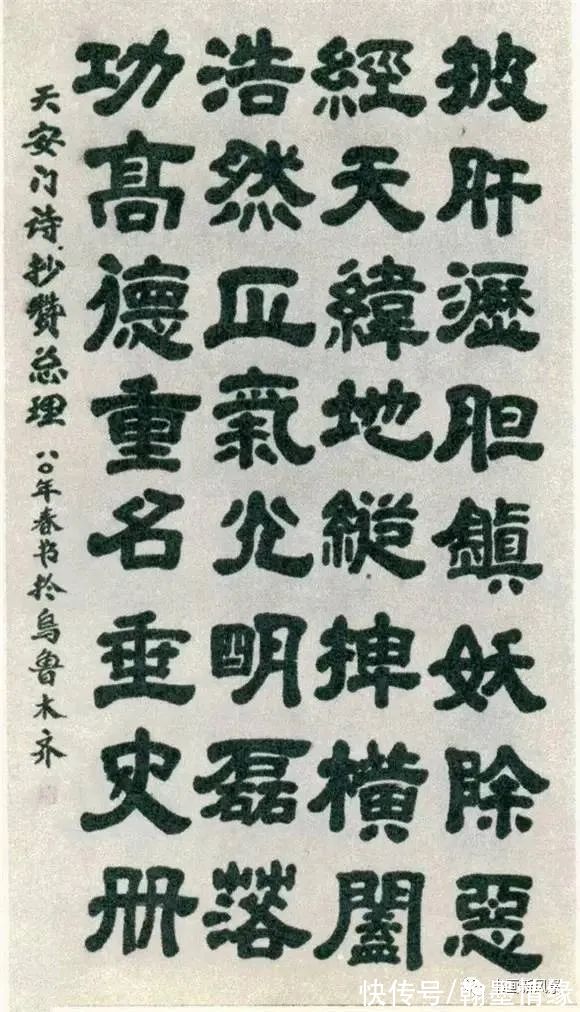 披肝瀝胆鎮妖除惡
經天緯地縱捭橫闔
浩然正氣光明磊落
功高德重名垂史册
天安门诗抄赞总理
八〇年春书於乌鲁木齐
快传号/翰墨情缘